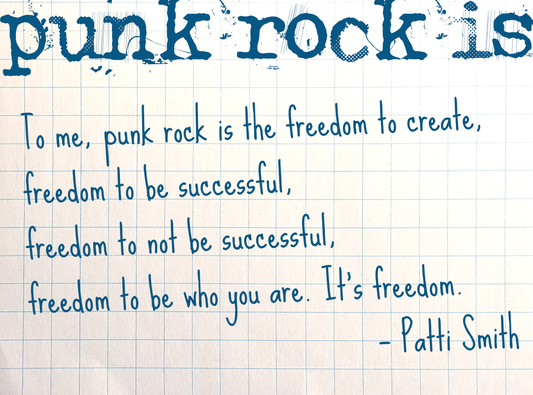 punk rock is
To me, punk rock is the freedom to create,
freedom to be successful,
freedom to not be successful,
freedom to be who you are. It's freedom.
- Patti Smith